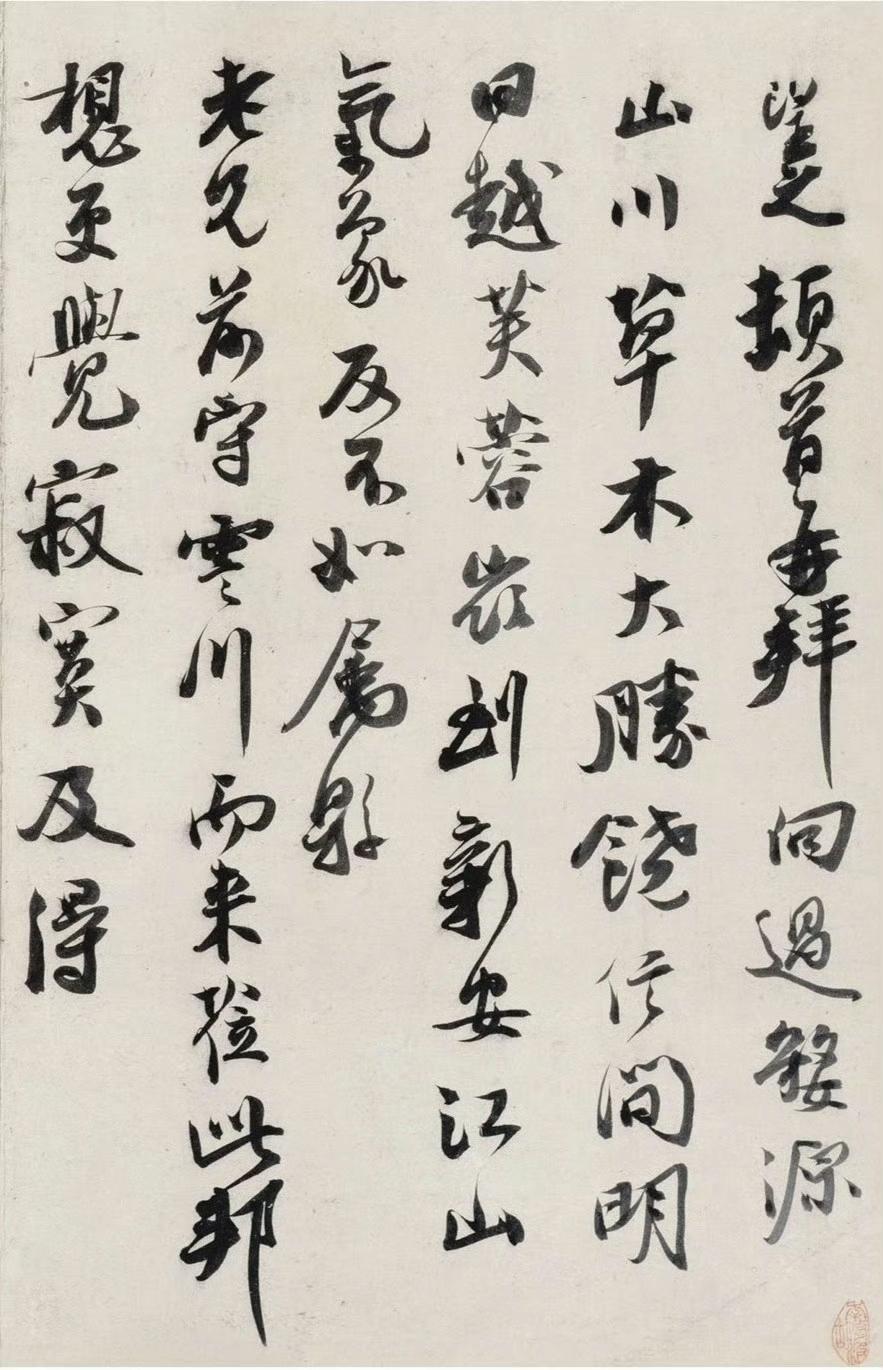 堅頓首再拜向過婺源
山川草木大勝饒信間明
日越芙蓉嶺到新安江山
氣象反不如屬縣
老兄前守霅川而來蒞此邦
想更覺寂寞及得